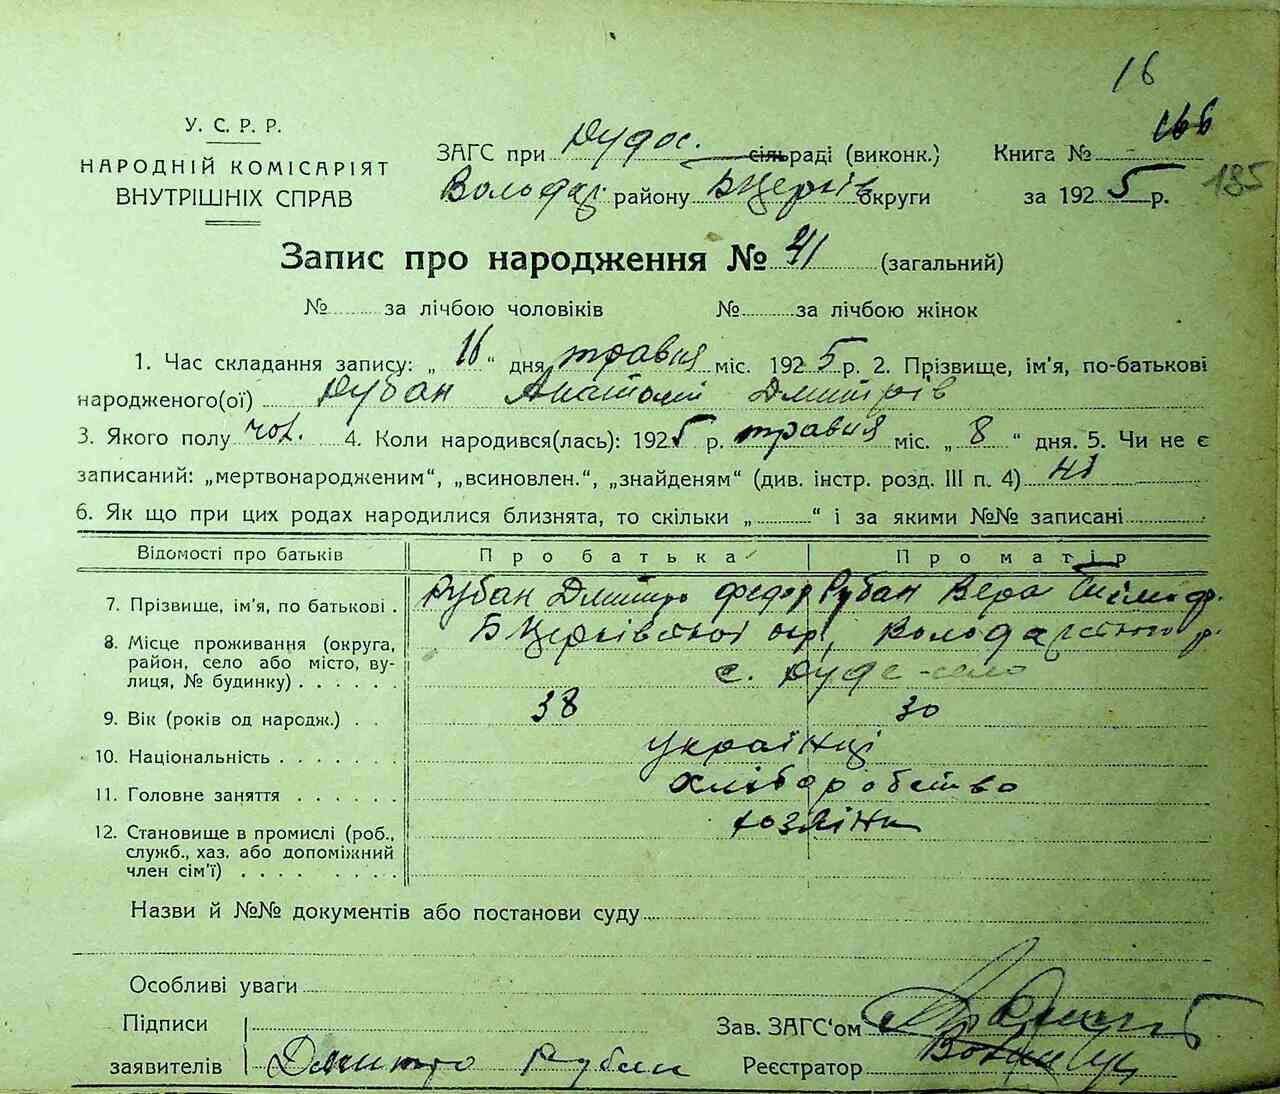 16
У. С. Р. Р.
НАРОДНІЙ КОМІСАРІЯТ
ВНУТРІШНІХ СПРАВ
ЗАГС при Рудос. сільраді (виконк.) Книга № 166
Володар. району БЦерків округи за 1925 р. 185
Запис про народження № 41 (загальний)
№ за лічбою чоловіків № за лічбою жінок
1. Час складання запису: „ 16 “ дня травня міс. 1925 р. 2. Прізвище, ім'я, по-батькові
народженого(ої) Рубан Анатолій Дмитрів
3. Якого полу чол. 4. Коли народився(лась): 1925 р. травня міс. „ 8 “ дня. 5. Чи не є
записаний: „мертвонародженим“, „всиновлен.“, „знайденям“ (див. інстр. розд. III п. 4) ні
6. Як що при цих родах народилися близнята, то скільки „ “ і за якими №№ записані
Відомості про батьків Про батька Про матір
7. Прізвище, ім'я, по батькові . Рубан Дмитро Федор Рубан Вера
8. Місце проживання (округа, район, село або місто, ву-лиця, № будинку) . . . . . . БЦерківської окр, Володарського р.
с. Руде-село
9. Вік (років од народж.) . . 38 30
10. Національність . . . . . . . українці
11. Головне заняття . . . . . . хліборобство
12. Становище в промислі (роб., служб., хаз. або допоміжний член сім'ї) . . . . . . . . хозяіни
Назви й №№ документів або постанови суду
Особливі уваги
Підписи
заявителів Дмитро Рубан
Зав. ЗАГС'ом
Реєстратор